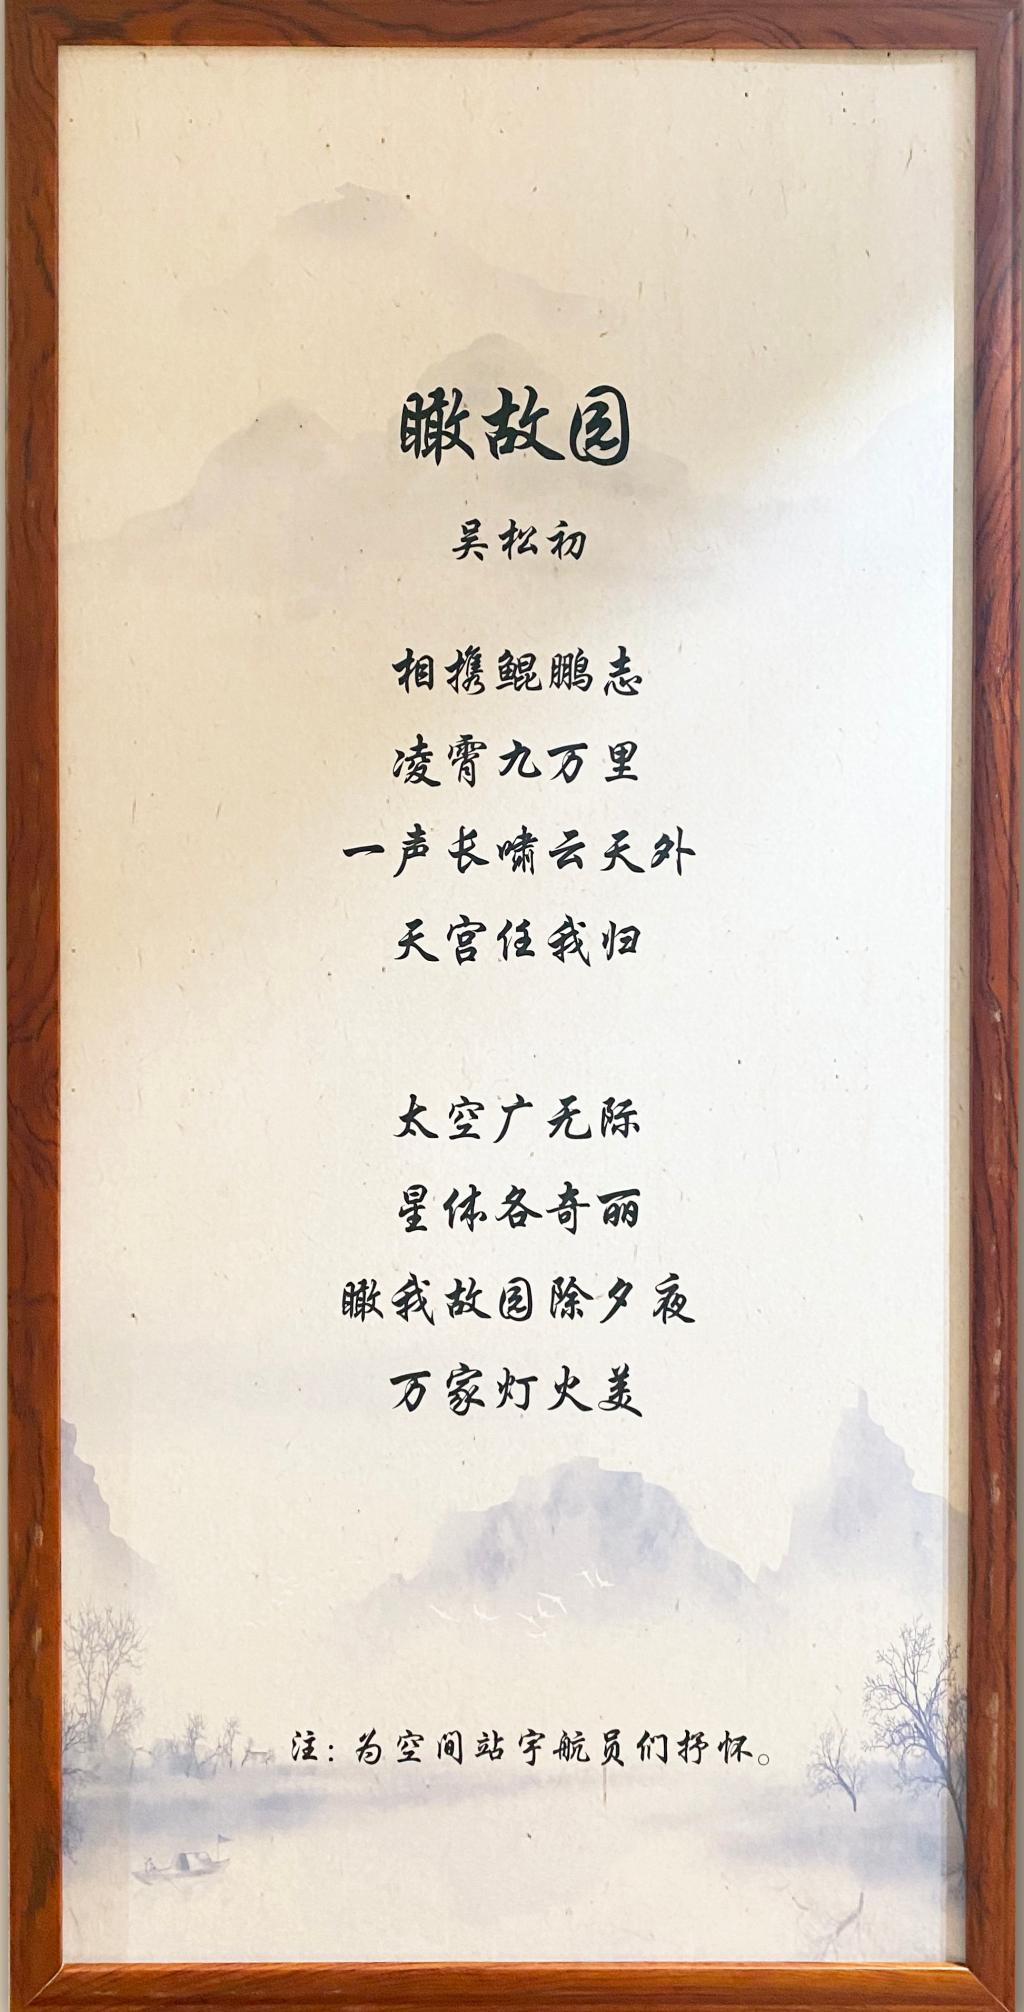 瞰故园
吴松初
相携鲲鹏志
凌霄九万里
一声长啸云天外
天宫任我归
太空广无际
星体各奇丽
瞰我故园除夕夜
万家灯火美
注：为空间站宇航员们抒怀。